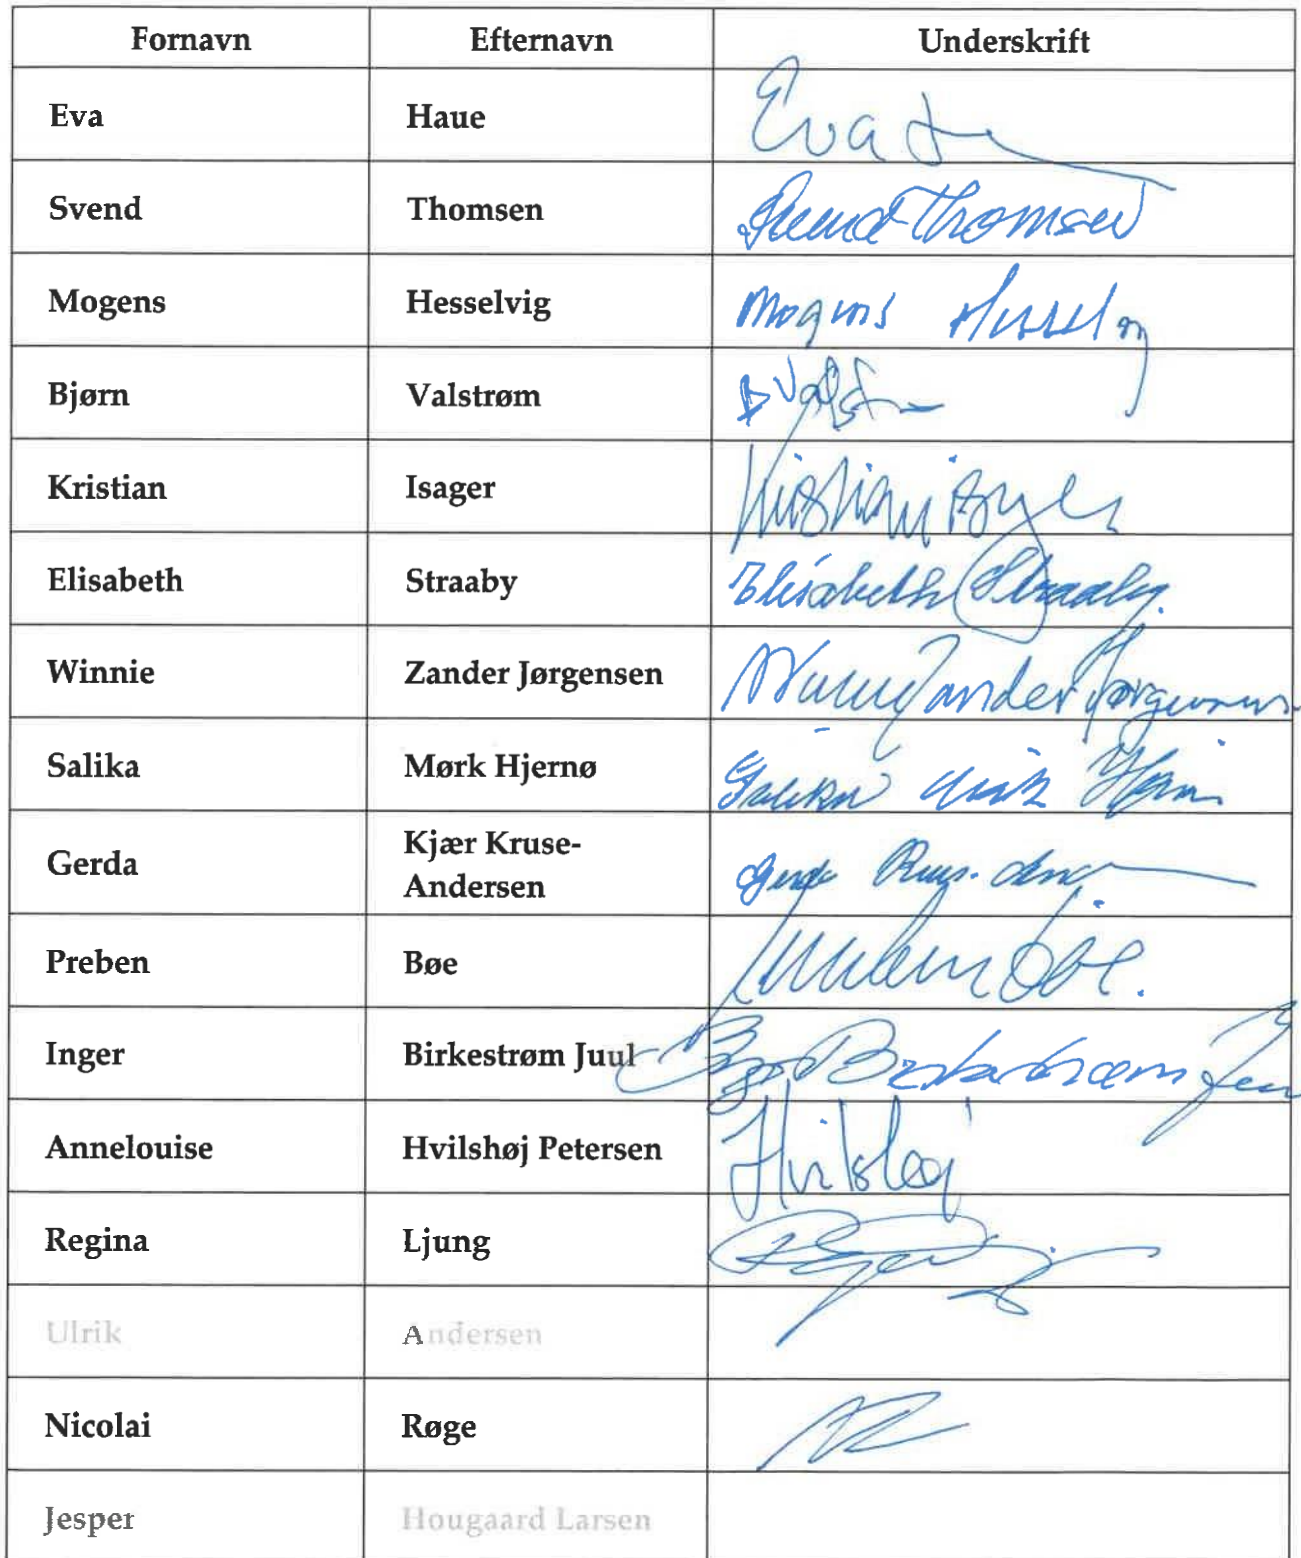 Fornavn Efternavn Underskrift
Eva Haue Eva
Svend Thomsen Svend Thomsen
Mogens Hesselvig Mogens
Bjørn Valstrøm
Kristian Isager Kristian Isager
Elisabeth Straaby Elisabeth Straaby.
Winnie Zander Jørgensen Winnie Zander Jørgensen
Salika Mørk Hjernø Salika Mørk
Gerda Kjær Kruse-
Andersen Gerda
Preben Bøe Preben Bøe.
Inger Birkestrøm Juul Birkestrøm
Annelouise Hvilshøj Petersen Hvilshøj
Regina Ljung
Ulrik Andersen
Nicolai Røge
Jesper Hougaard Larsen